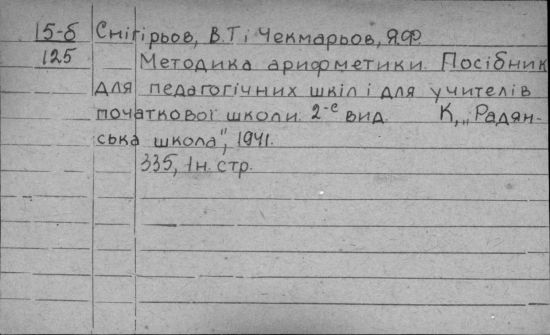 15-б Снігірьов, В.Т. і Чекмарьов, Я.Ф.
125 Методика арифметики. Посібник
для педагогічних шкіл і для учителів
початкової школи. 2-е вид. К., „Радян-
ська школа", 1941.
335, 1 н. стр.